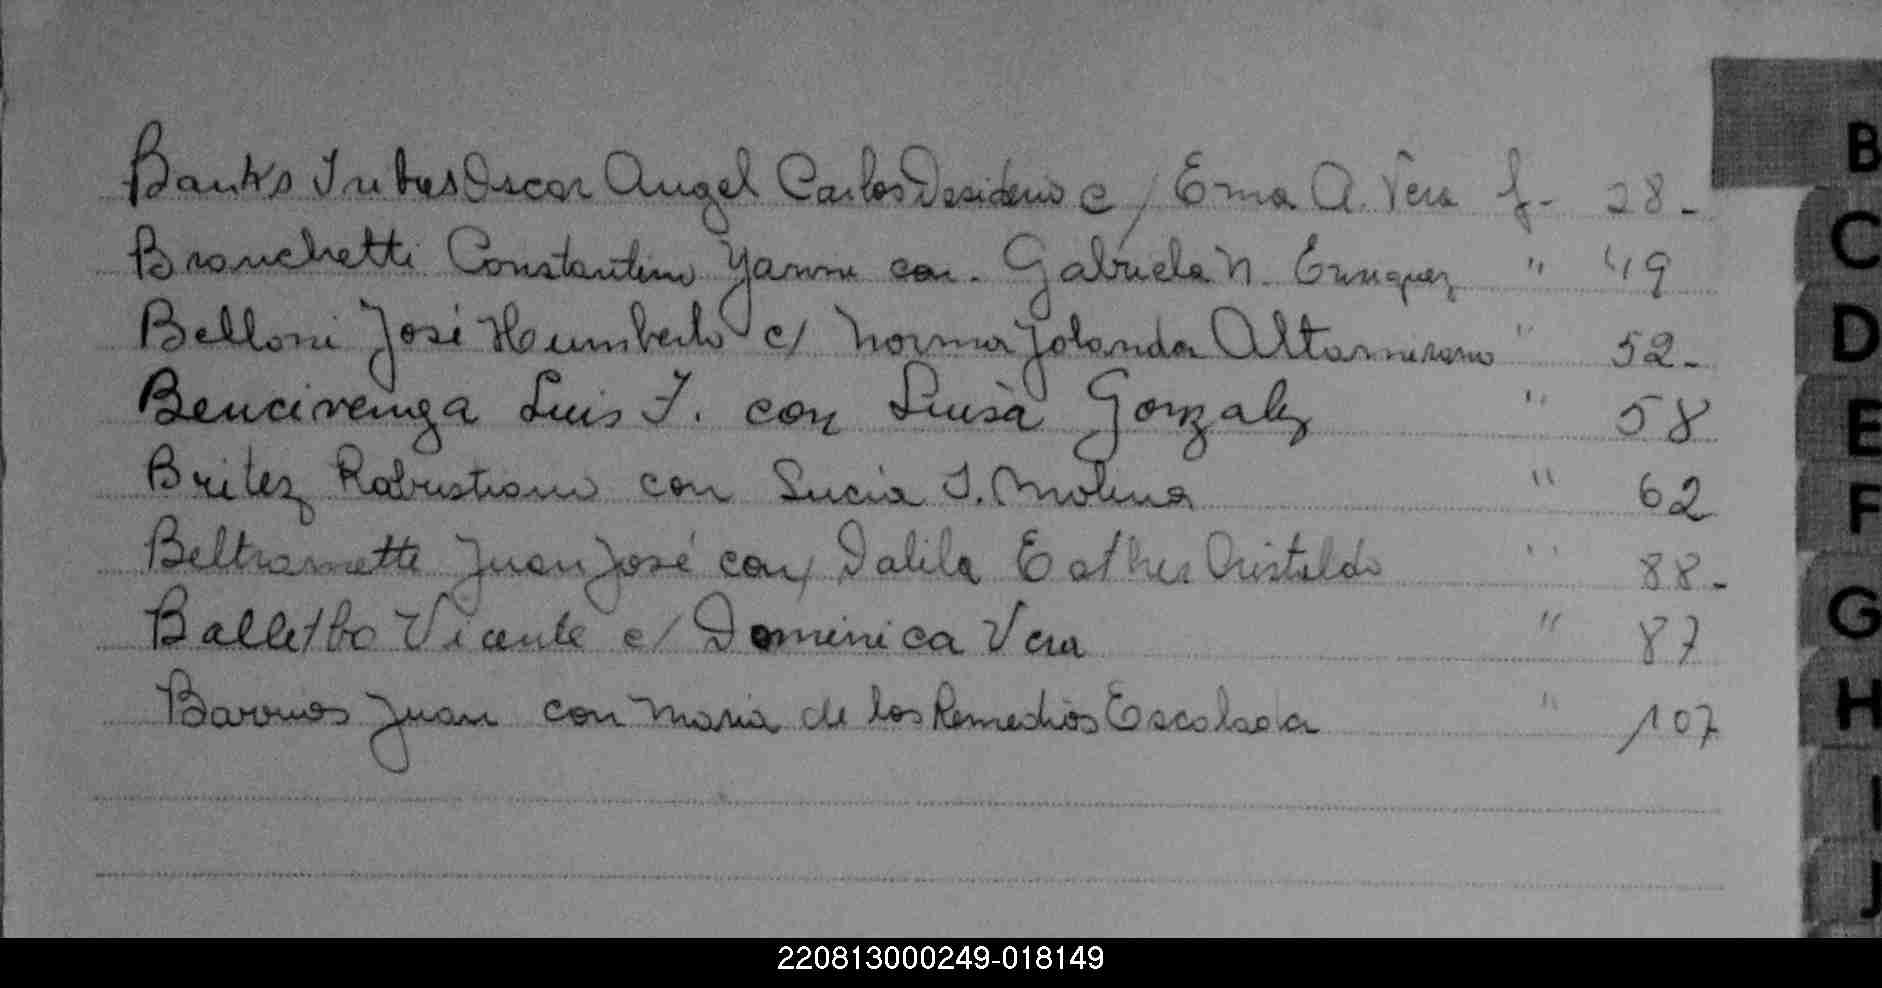 Banks Oscar Angel Carlos Desiderio c/ Ema A. Vera f- 28-
Branchetti Constantino con. Gabriela N. Enriquez " 49
Belloni José Humberto c/ Norma Jolanda Altamirano " 52-
Bencivenga Luis F. con Luisa Gonzalez " 58
Britez Robustiano con Lucia I. Molina " 62
Beltrametti Juan José con Dalila Esther Cristaldo " 88-
Balletbo Vicente c/ Dominica Vera " 87
Barrios Juan con Maria de los Remedios Escalada " 107
B
C
D
E
F
G
H
I
J
220813000249-018149